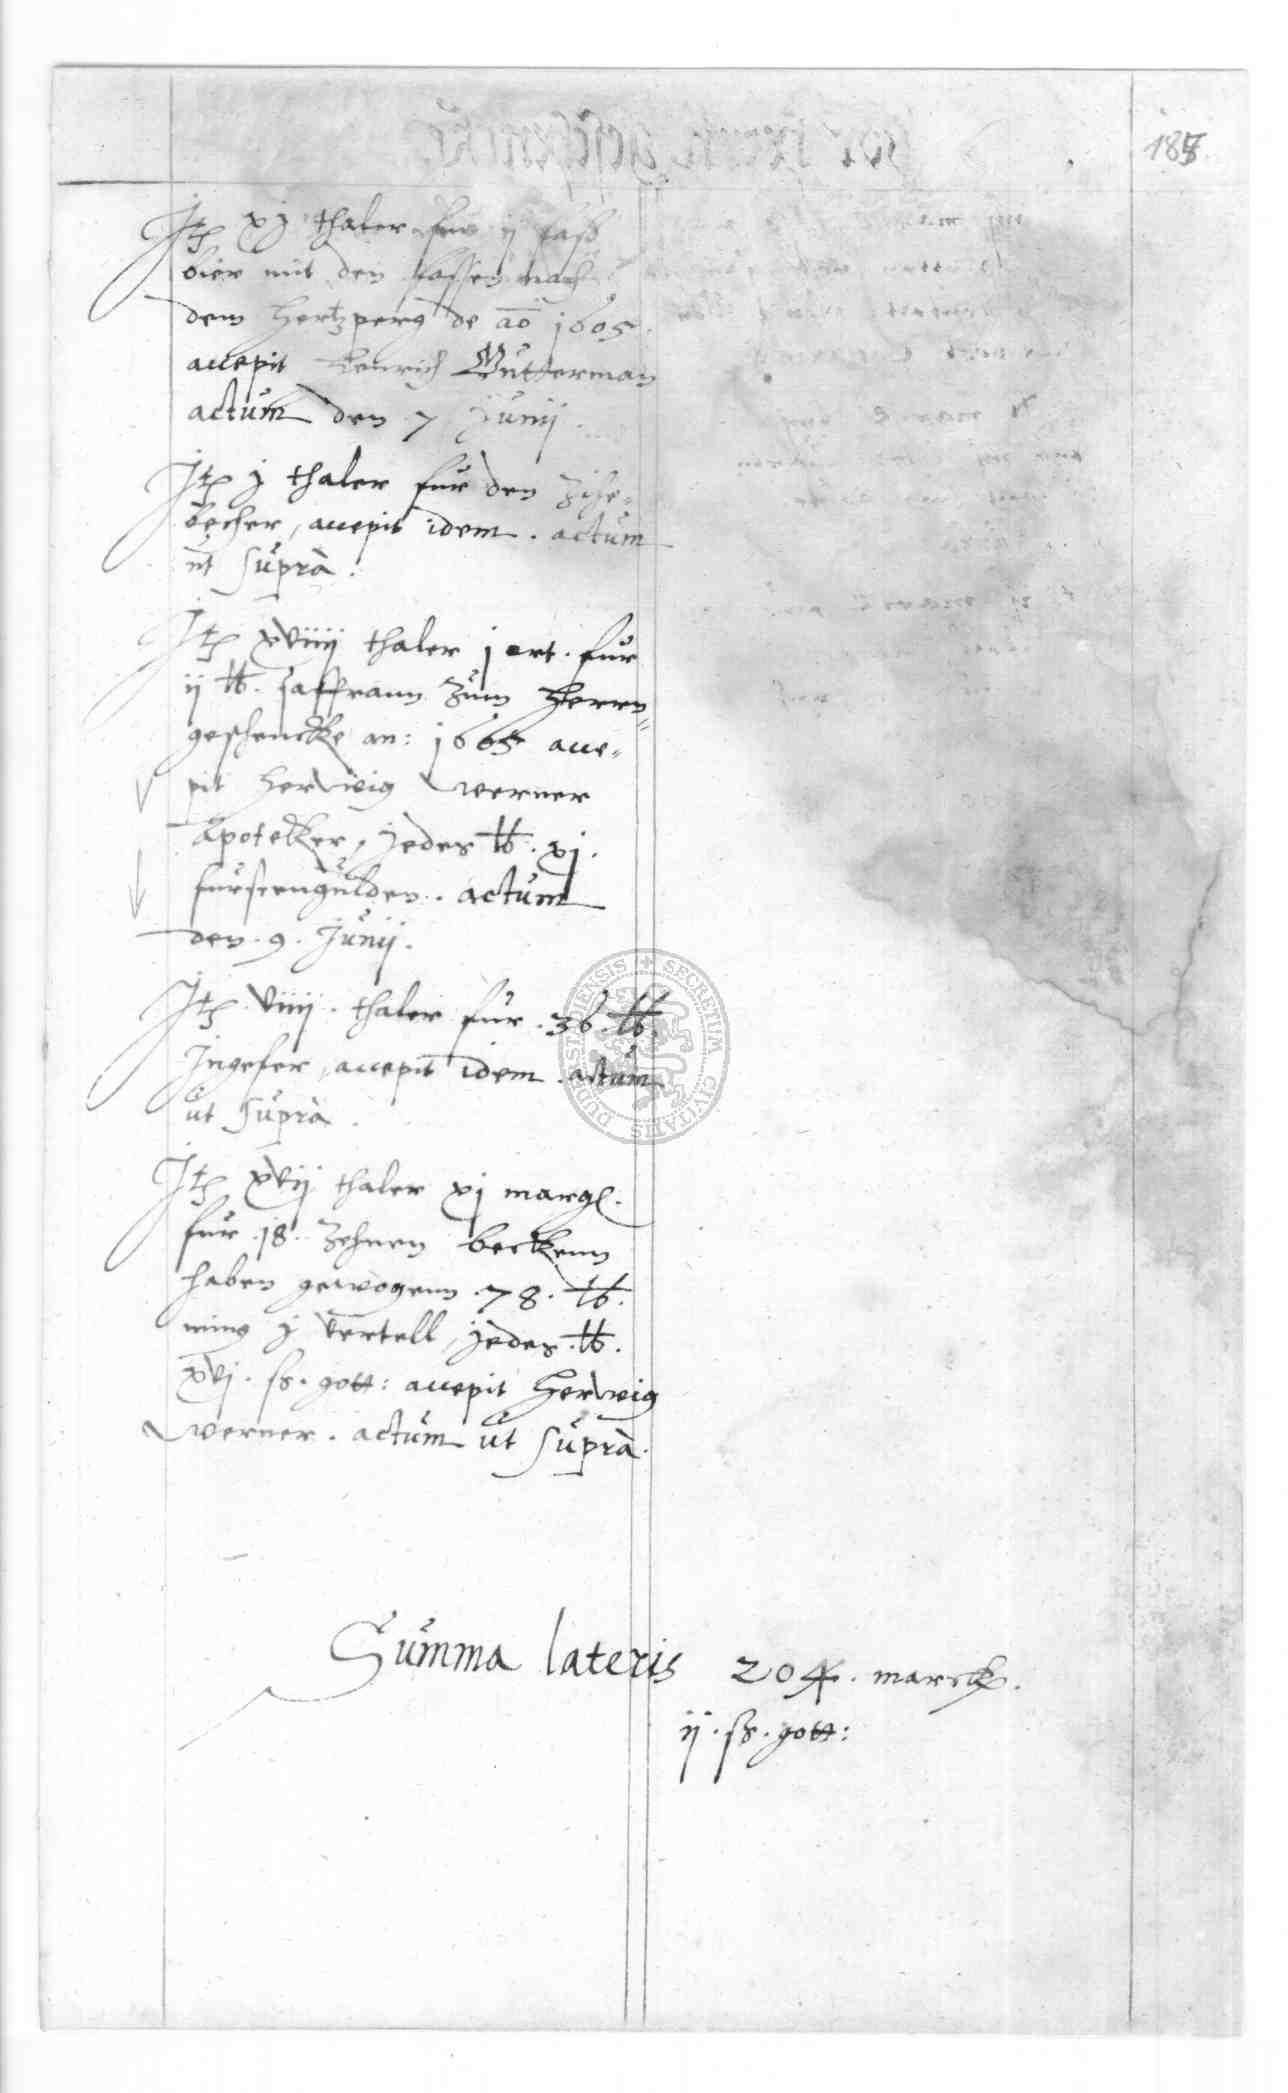 187
Jtꝫ xj thaler fur ij faß
bier mit den fassen nach
dem Hertzperg de ao 1605.
accepit Henrich Wutterman
actum den 7 Junij.
Jtꝫ j thaler fur den
becher, accepit idem. actum
ut supra.
Jtꝫ xviiij thaler j ort. fur
ij ℔. saffrann zum Herrn=
geschencke an: 1605 acce=
pit Herwig werner
Apotekker, jedes ℔. xj.
furstengulden. actum
den. 9. Junij.
Jtꝫ viiij. thaler fur. 36. ℔.
Jngefer, accepit idem. actum
ut supra.
Jtꝫ xvij thaler xj margl.
fur. 18. zehnen beckenn
haben gewogenn. 78. ℔.
ming j vertell, jedes. ℔.
xvj. ß. gott: accepit Herwig
werner. actum ut supra.
Summa lateris 204. marck.
ij. ß. gott:
SECRETUM CIVITATIS DUDERSTADIENSIS